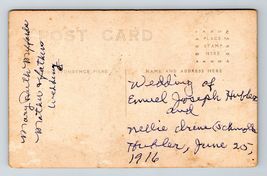 POST CARD
PLACE
STAMP
HERE
CORRESPONDENCE HERE
NAME AND ADDRESS HERE
Mary Ruth
Mother &
Wedding of
Emuel Joseph Hubler
and
Nellie Irene (Schmoll
Hubler, June 25,
1916